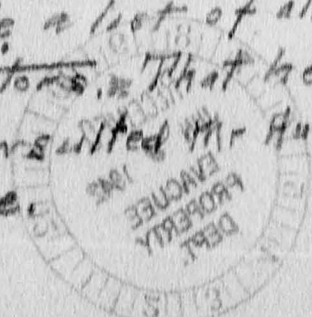 a list of al
tors. That he
nsulted Mr Hu
e.
RECEIVED
1942
EVACUEE
PROPERTY
DEPT.